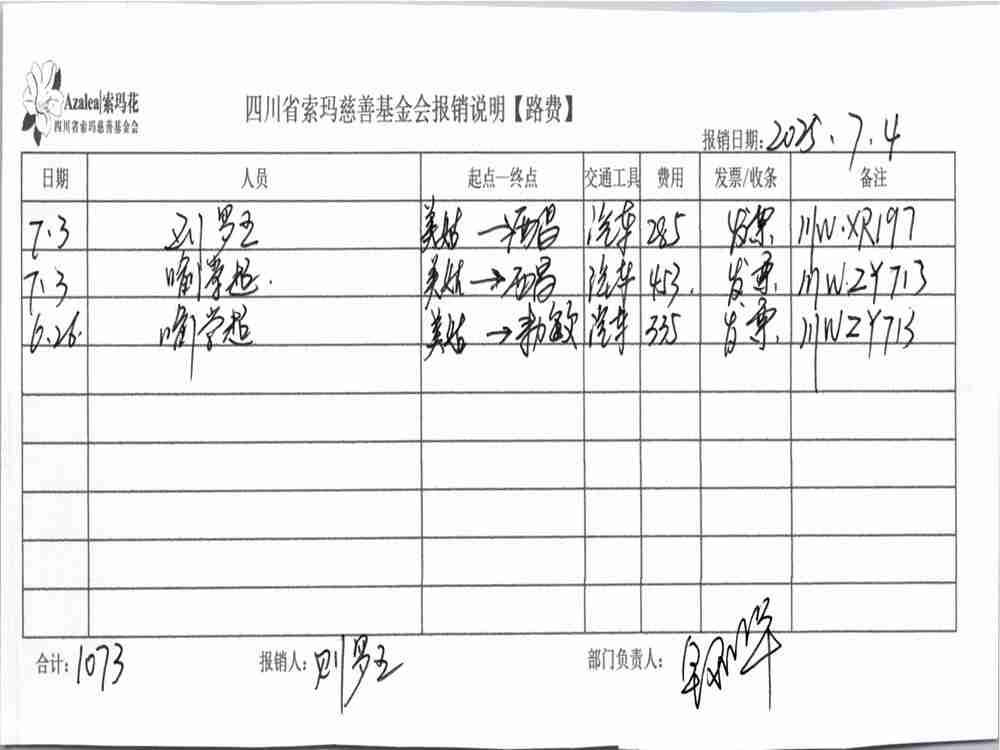 Azalea|索玛花
四川省索玛慈善基金会
四川省索玛慈善基金会报销说明【路费】
报销日期: 2025.7.4
日期 人员 起点—终点 交通工具 费用 发票/收条 备注
7.3 罗王 美姑→西昌 汽车 285 发票 川W·XR197
7.3 喻学超 美姑→西昌 汽车 453 发票 川W·ZY713
6.26 喻学超 美姑→ 汽车 335 发票 川WZY713
合计: 1073 报销人: 则罗王 部门负责人: